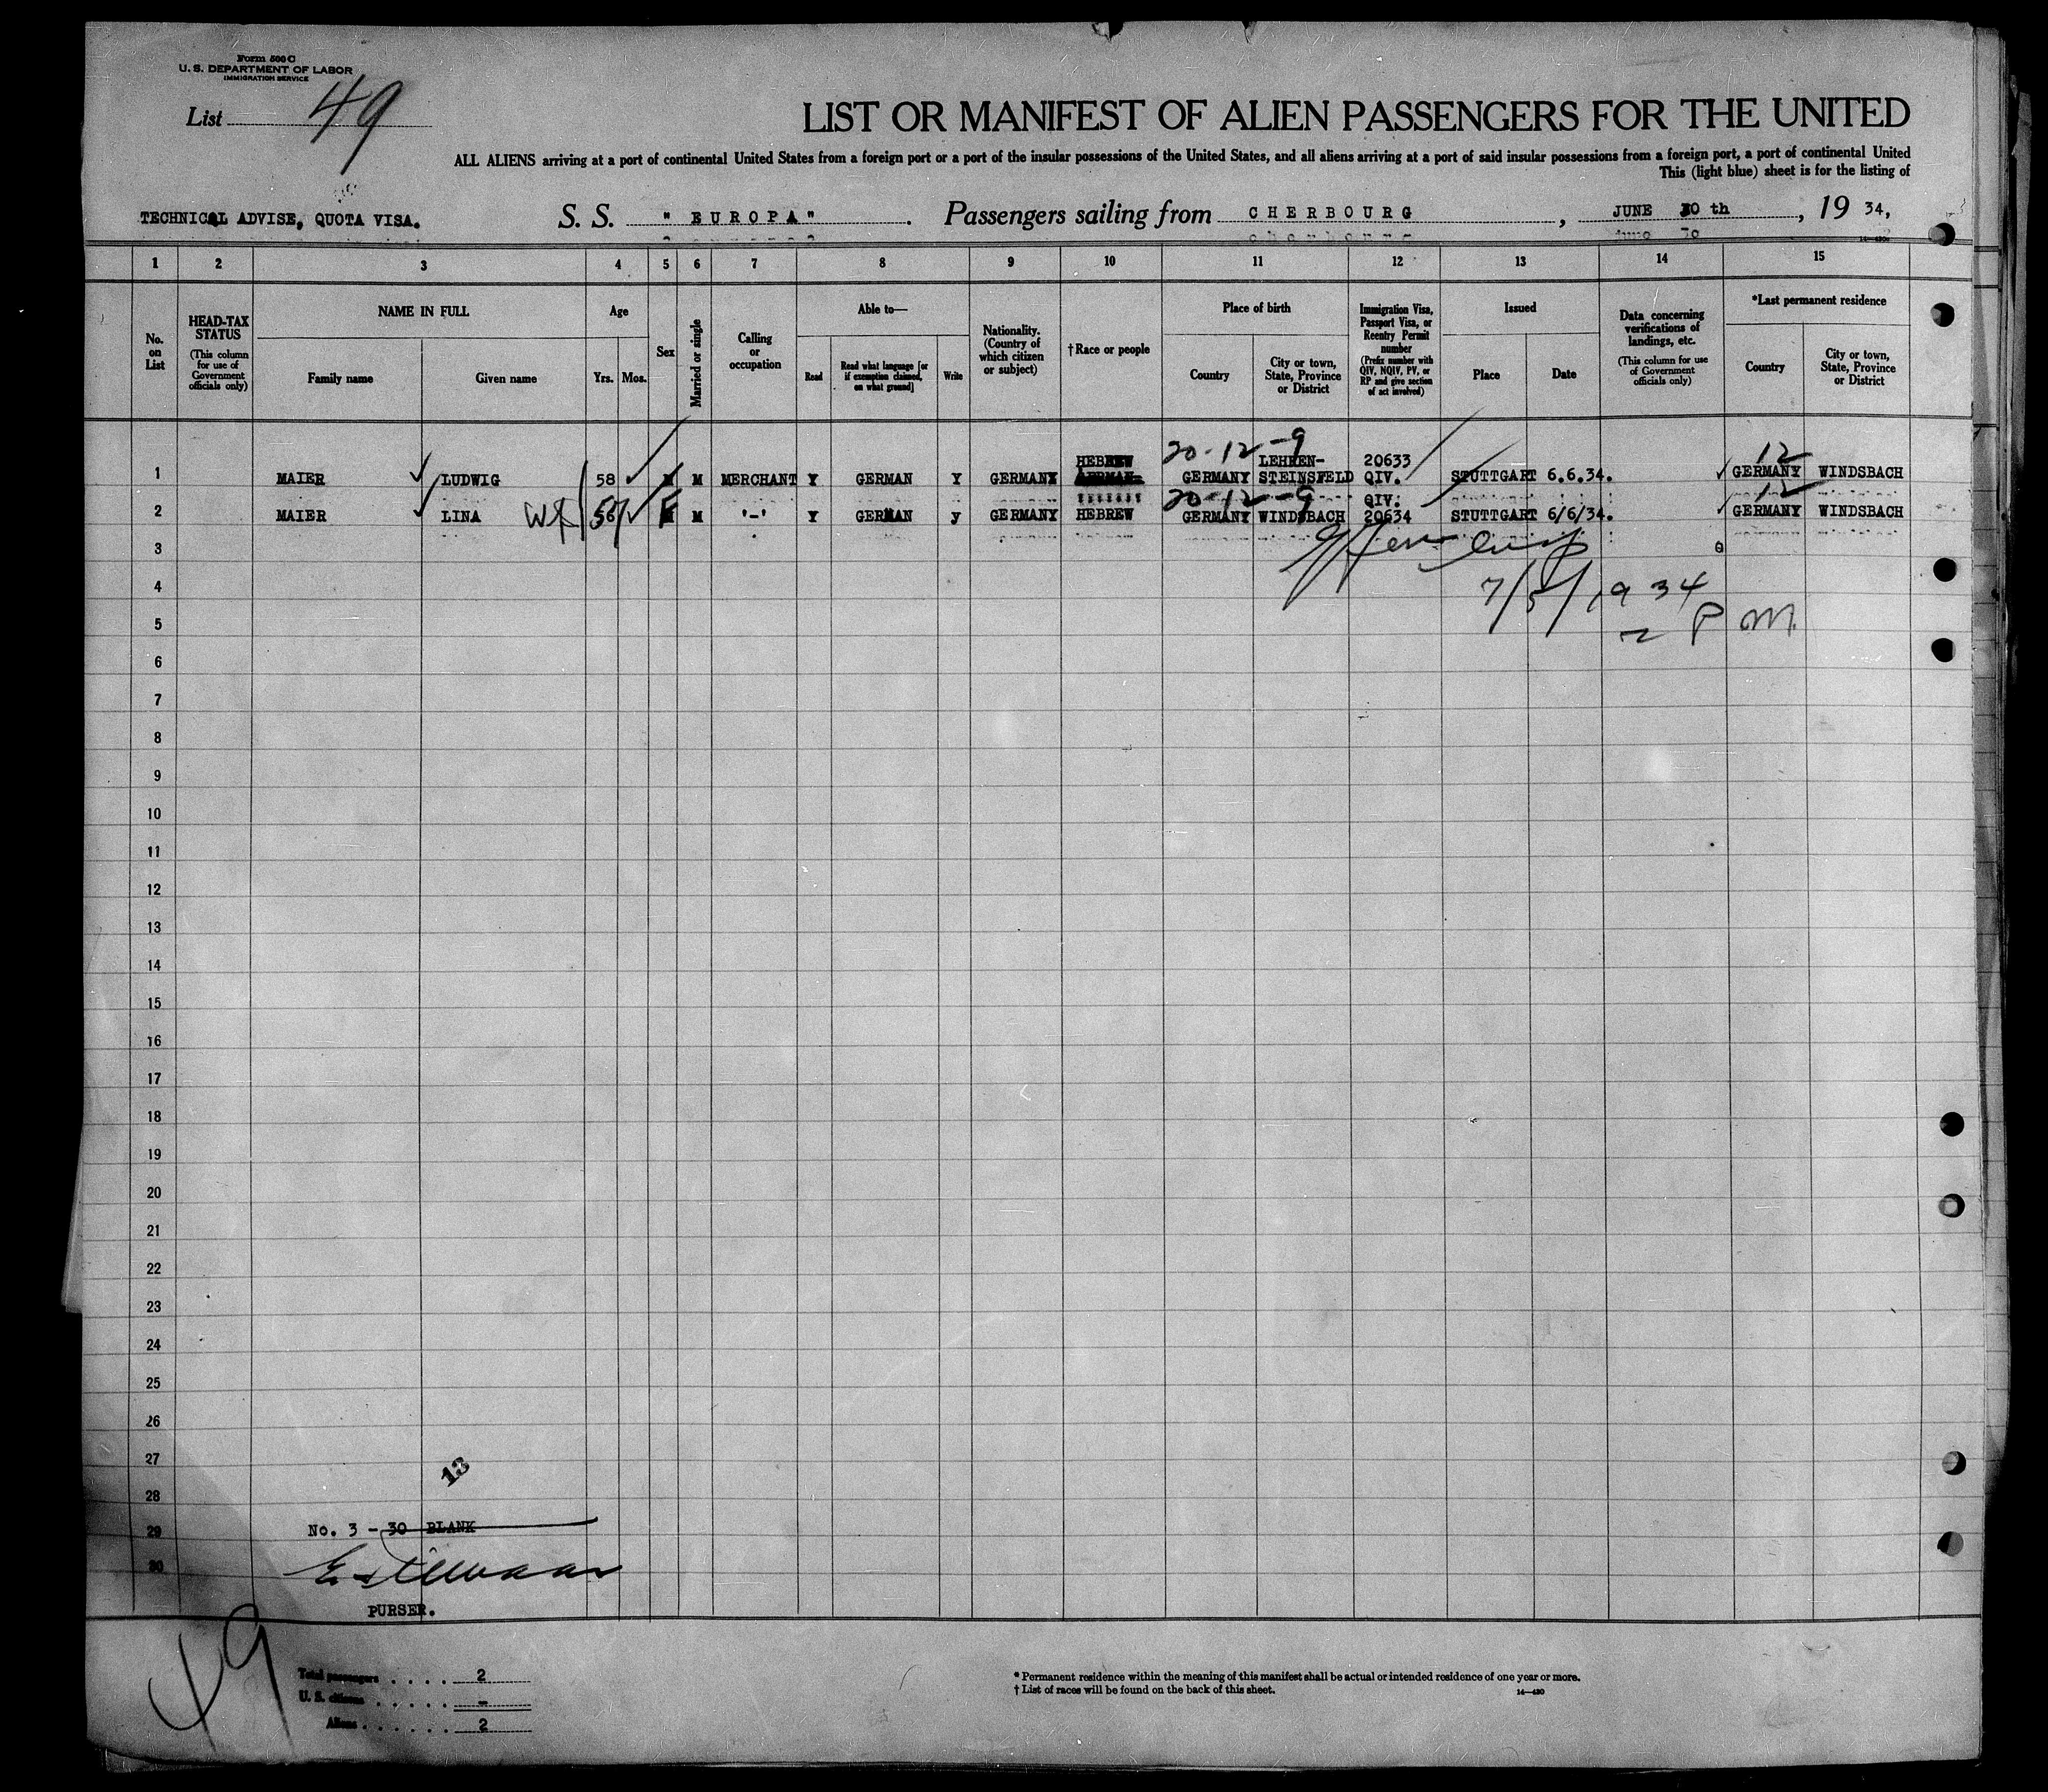 Form 500 C
U. S. DEPARTMENT OF LABOR
IMMIGRATION SERVICE
List 49
LIST OR MANIFEST OF ALIEN PASSENGERS FOR THE UNITED
ALL ALIENS arriving at a port of continental United States from a foreign port or a port of the insular possessions of the United States, and all aliens arriving at a port of said insular possessions from a foreign port, a port of continental United
This (light blue) sheet is for the listing of
TECHNICAL ADVISE, QUOTA VISA. S. S. "EUROPA". Passengers sailing from CHERBOURG, JUNE 30 th, 19 34,
1 2 3 4 5 6 7 8 9 10 11 12 13 14 15
No. on List
HEAD-TAX STATUS
(This column for use of Government officials only)
NAME IN FULL
Family name Given name
Age
Yrs. Mos.
Sex
Married or single
Calling or occupation
Able to—
Read
Read what language [or if exemption claimed, on what ground]
Write
Nationality. (Country of which citizen or subject)
†Race or people
Place of birth
Country
City or town, State, Province or District
Immigration Visa, Passport Visa, or Reentry Permit number
(Prefix number with QIV, NQIV, PV, or RP and give section of act involved)
Issued
Place Date
Data concerning verifications of landings, etc.
(This column for use of Government officials only)
*Last permanent residence
Country
City or town, State, Province or District
20-12-9 12
HEBREW LEHREN- 20633
1 MAIER LUDWIG 58 M M MERCHANT Y GERMAN Y GERMANY GERMANY STEINSFELD QIV. STUTTGART 6.6.34. GERMANY WINDSBACH
20-12-9 QIV. 12
2 MAIER LINA Wf 56 F M '-' Y GERMAN y GERMANY HEBREW GERMANY WINDSBACH 20634 STUTTGART 6/6/34. GERMANY WINDSBACH
3
4 7/5/1934
5 2 P M.
6
7
8
9
10
11
12
13
14
15
16
17
18
19
20
21
22
23
24
25
26
27
13
28
29 No. 3 - 30 BLANK
30
PURSER.
49
Total passengers . . . . 2
U. S. citizens . . . . . -
Aliens . . . . . . 2
* Permanent residence within the meaning of this manifest shall be actual or intended residence of one year or more.
† List of races will be found on the back of this sheet.
14—430